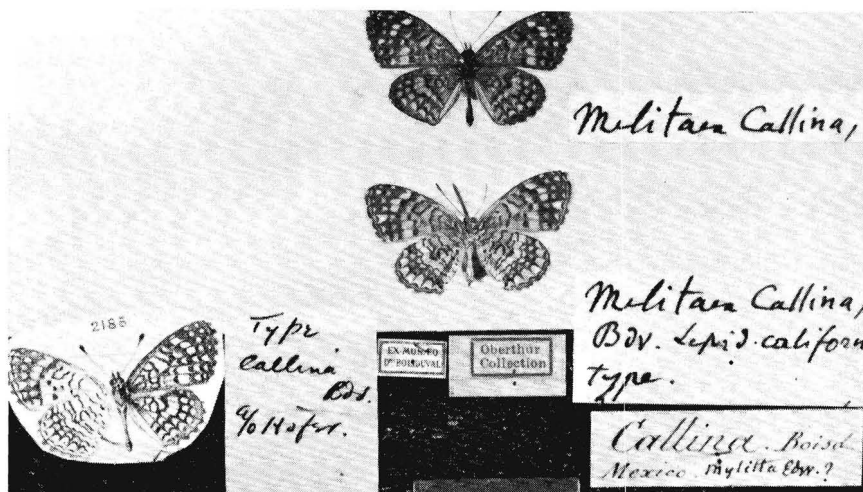 Melitaea Callina,
Melitaea Callina,
Bdv. Lepid. californ
type.
2186
Type
Callina
Bdv.
Hofer.
EX-MUSÆO
Dris BOISDUVAL
Oberthur
Collection
Callina Boisd
Mexico. mylitta Edw.?